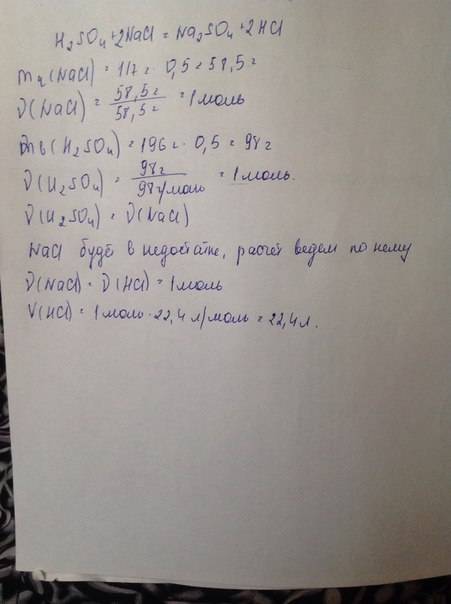 H₂SO₄+2NaCl = Na₂SO₄+2HCl
m₂(NaCl) = 117г · 0,5 = 58,5г
ν(NaCl) = 58,5г / 58,5г = 1моль
mв(H₂SO₄) = 196г · 0,5 = 98г
ν(H₂SO₄) = 98г / 98г/моль = 1моль.
ν(H₂SO₄) = ν(NaCl)
NaCl будет в недостатке, расчёт ведем по нему
ν(NaCl) = ν(HCl) = 1моль
V(HCl) = 1моль · 22,4 л/моль = 22,4л.